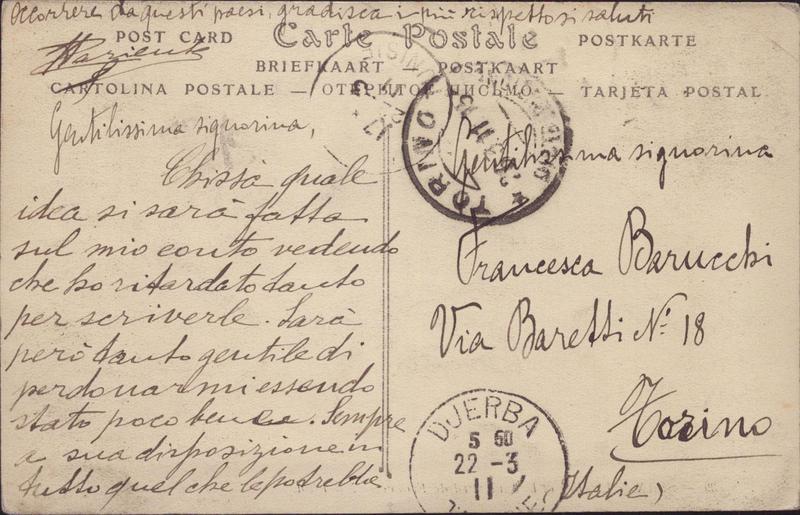 occorrere da questi paesi, gradisca i più rispettosi saluti
POST CARD Carte Postale POSTKARTE
BRIEFKAART — POSTKAART
CARTOLINA POSTALE — ОТКРЫТОЕ ПИСЬМО — TARJETA POSTAL
Gentilissima signorina,
Chissà quale
idea si sarà fatta
sul mio conto vedendo
che ho ritardato tanto
per scriverle. Sarà
però tanto gentile di
perdonarmi essendo
stato poco bene. Sempre
a sua disposizione in
tutto quel che le potrebbe
TORINO
Gentilissima signorina
Francesca Barucchi
Via Baretti N. 18
Torino
(Italie)
DJERBA
5 60
22 - 3
11